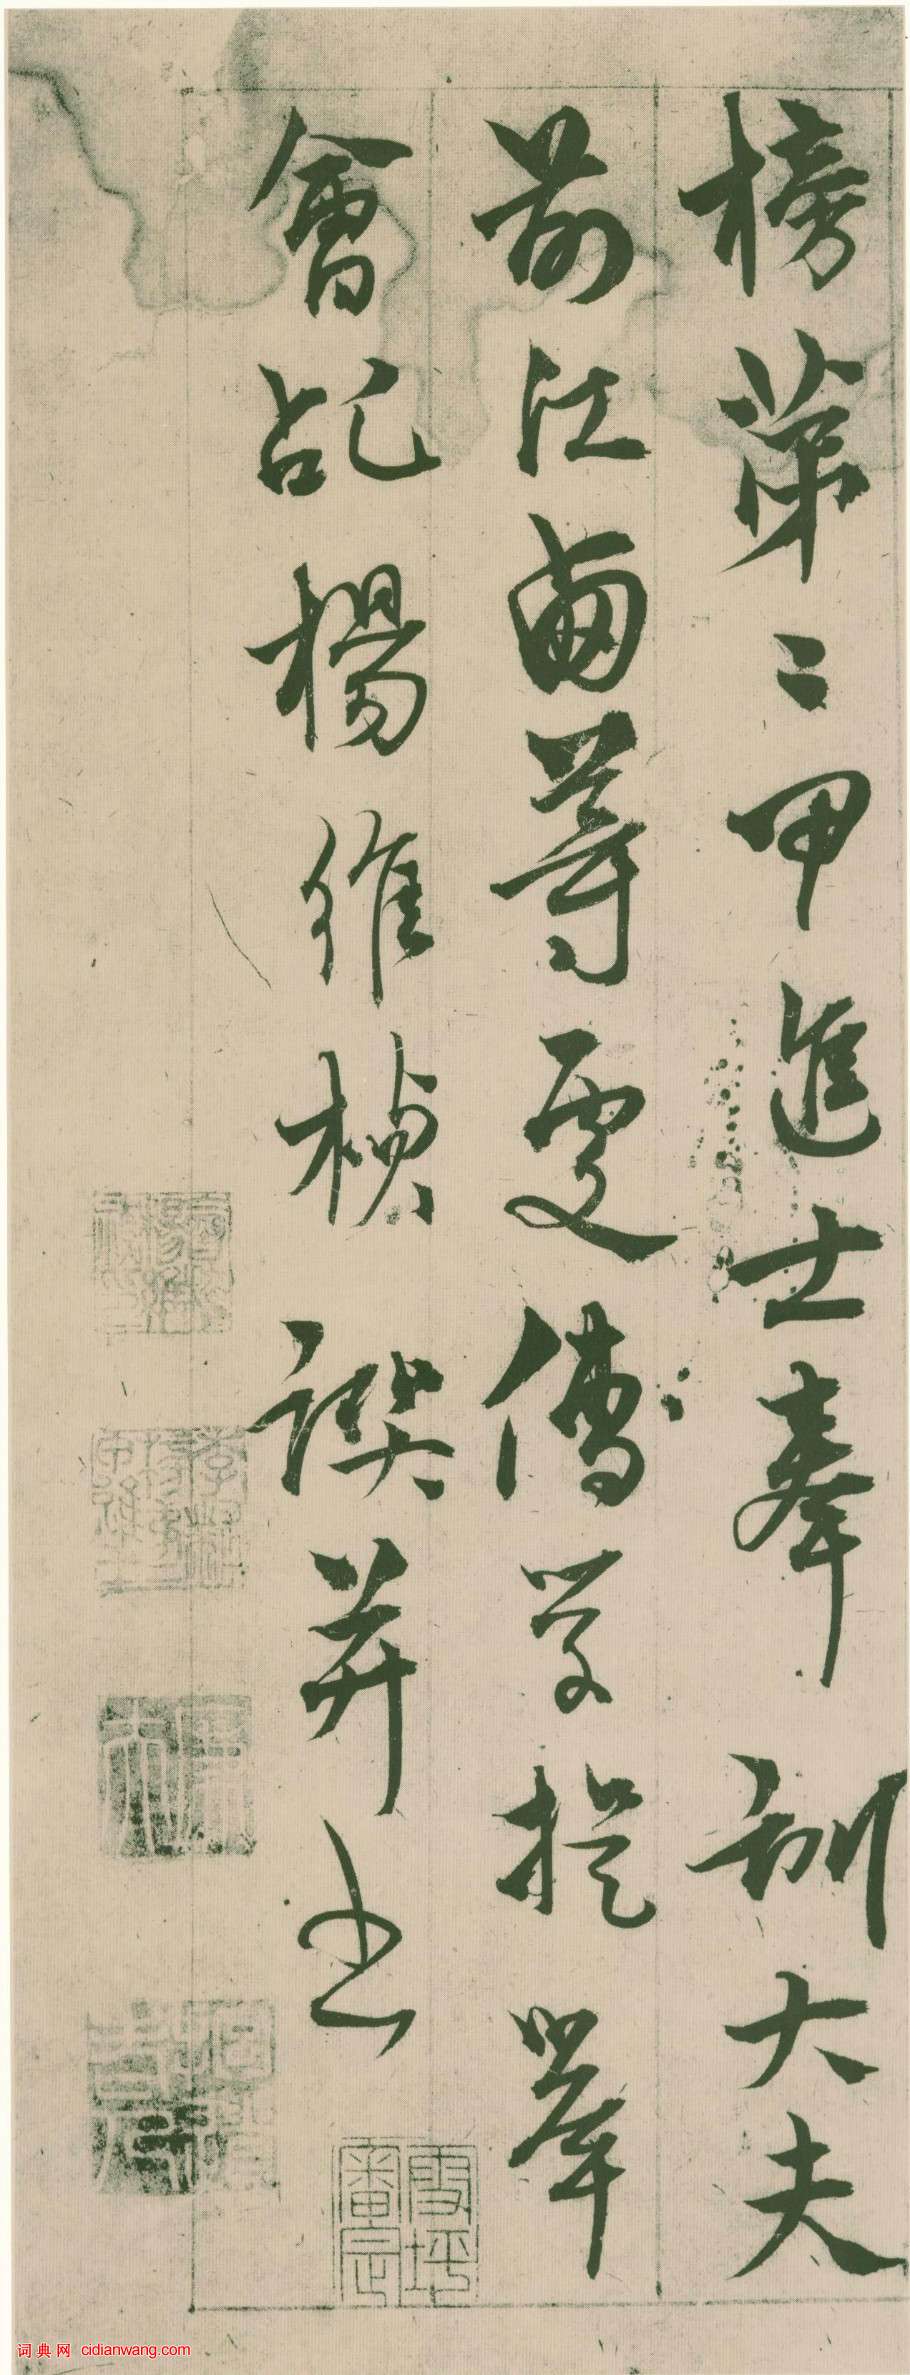 榜第二甲進士奉訓大夫
前江西等處儒學提舉
會稽楊維楨譔并書
詞典网 cidianwang.com